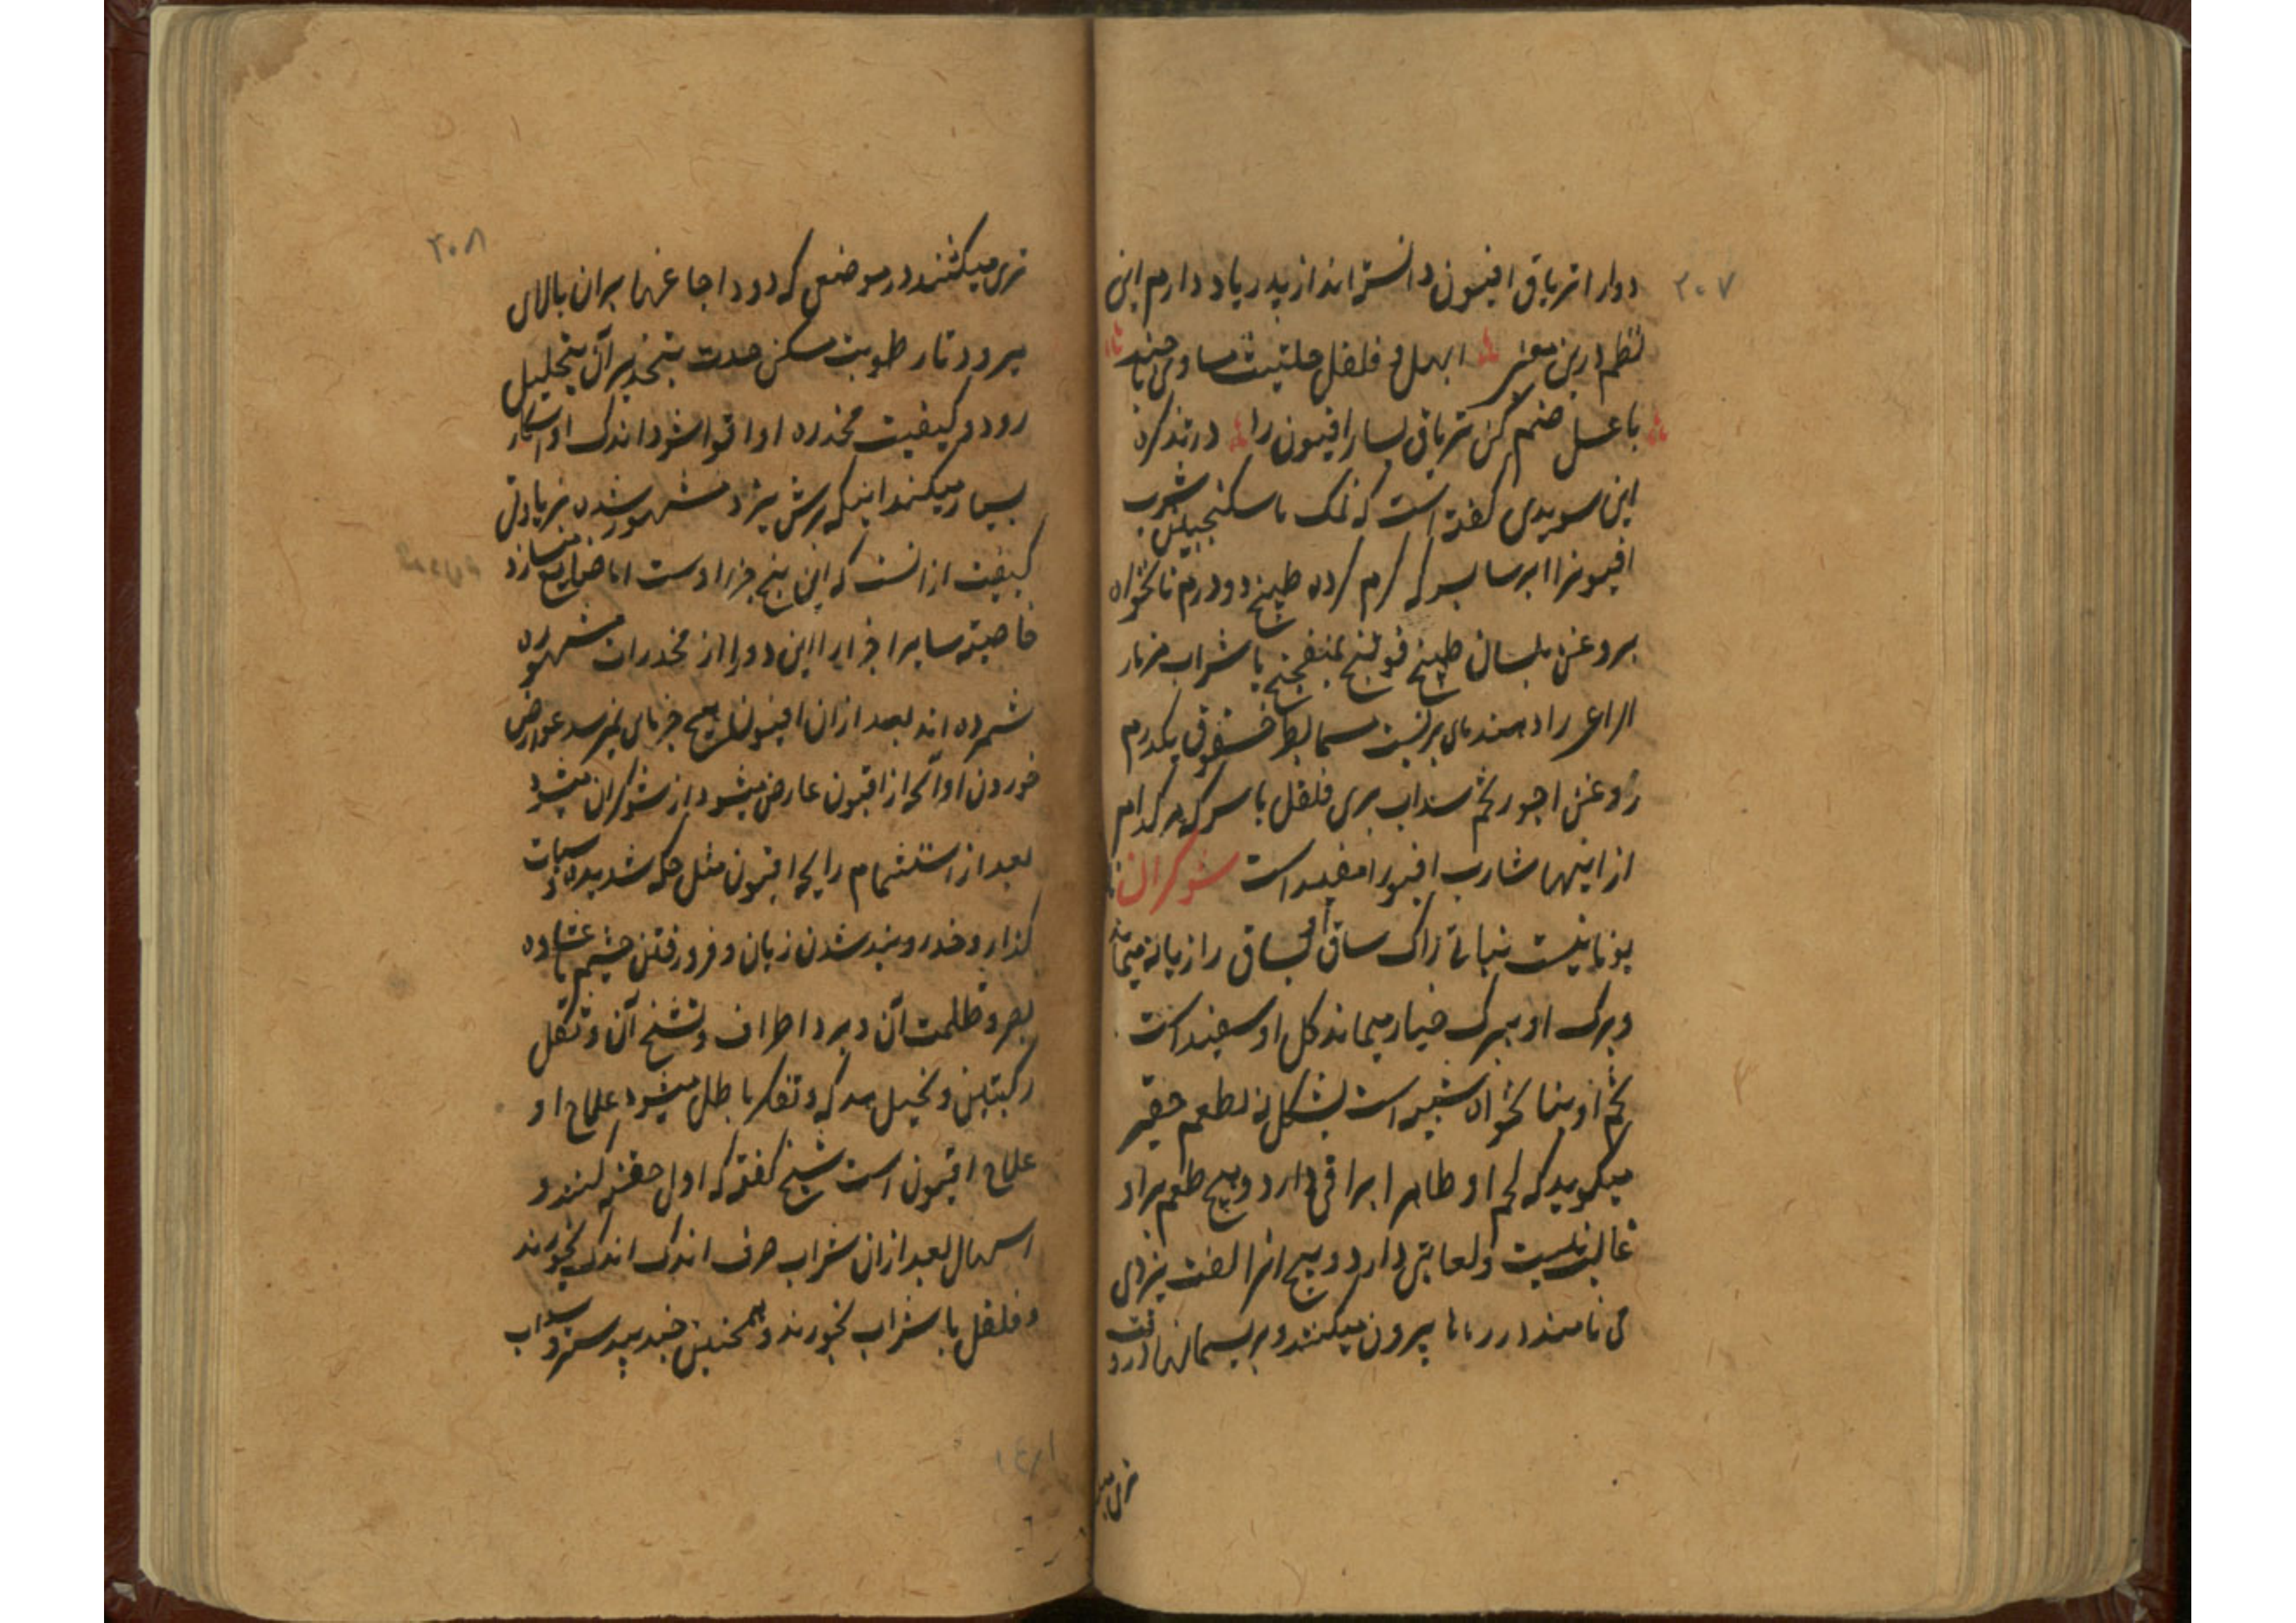 ۲۰۷
دوار اتریاق افیون دانسته‌اند از پدر یاد دارم این
نظم درین معنی ابهل و فلفل حلتیت مساوی جند
با عسل ضم کن تریاق ساز افیون را در تذکره
ابن سویدی کفته است که نمک با سکنجبین شرب
افیونرا ابرسا بسرکه کرم کرده طبیخ دو درم نانخواه
بروغن بلسان طبیخ فوتنج بمیفختج با شراب مزمار
الراعی راد هندبای بری نیست یکدرم
روغن اجور تخم سنداب بری فلفل با سرکه هرکدام
از اینها شارب افیونرا مفید است شوکران
یونانیست نباتی زاک ساق او بساق رازیانه میماند
و برک او ببرک خیار میماند کل او سفیداست
تخم او بنانخواه شبیه است بشکل نه لطعم حقیر
میکوید که تخم او ظاهرا براقی دارد و هیچ طعم براو
غالب نیست و لعابتی دارد و بیخ انرا لفت یزدی
می نامند در بیرون میکنند و بریسمانها درو
تری میـ
۲۰۸
تری میکشند در موضعی که دود اجاغها بران بالای
میرود تا رطوبت مسکن حدت بتخدیر آن بتحلیل
رود و کیفیت مخدره او اقوا شود اندک او کار
بسیار میکند اینکه برش یزد مشهور شده بزیادتی
کیفیت ازانست که این بیخ جزا اوست اما ضایع میسازد
خاصیته سایر اجزا را این دوا را از مخدرات مشهوره
شمرده‌اند بعد ازان افیون هیچ جز بای نمیرسد عوارض
خوردن او آنچه از افیون عارض میشود از شوکران میشود
بعد از استشمام رایحه افیون مثل حکه شدیده و سبات
کذار و خدر و بند شدن زبان و فرو رفتن چشم با غشاوه
بصر و ظلمت آن و برد اطراف و تشنج آن و ثقل
رکبتین و تخیل مدرکه و تفکر باطل میشود علاج او
علاج افیون است شیخ کفته که اول حقنه کنند و
اسهال بعد ازان شراب صرف اندک اندک بخورند
و فلفل با شراب بخورند و همچنین جندبیدستر و سداب